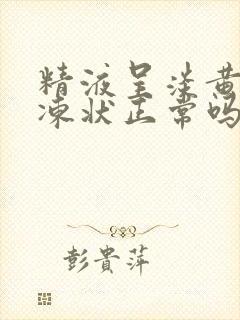 精液呈淡黄
凍状正常吗
彭貴萍